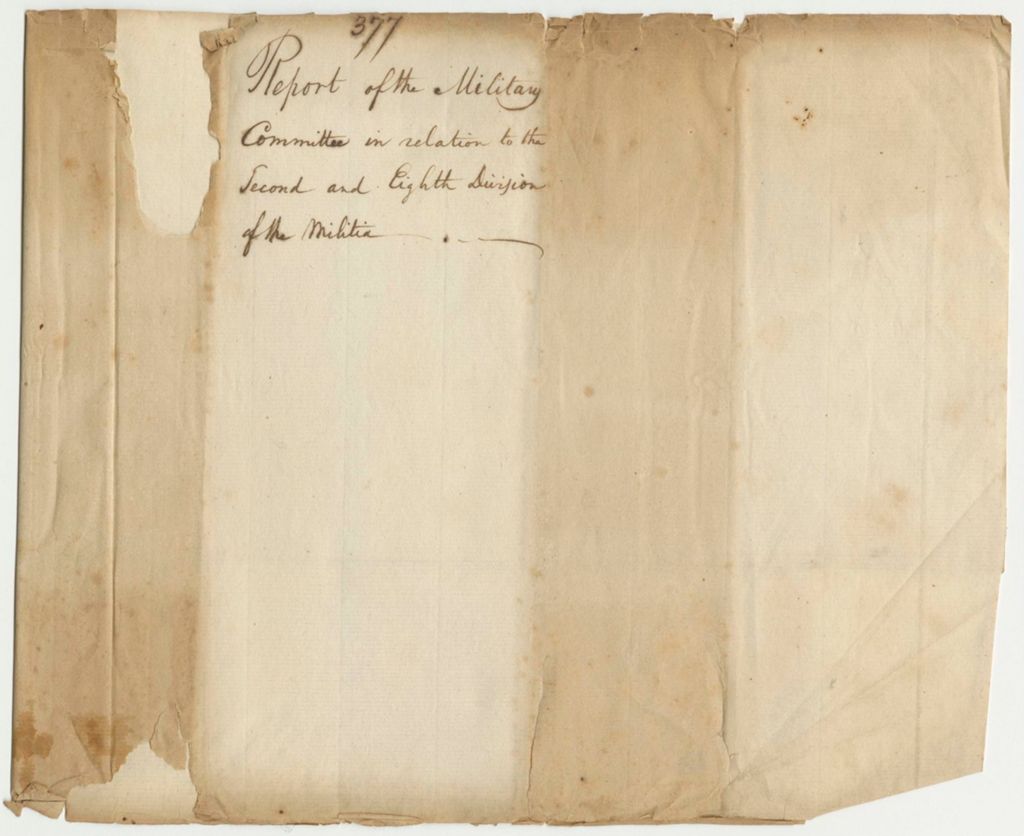 377
Report of the Military
Committee in relation to the
Second and Eighth Division
of the Militia